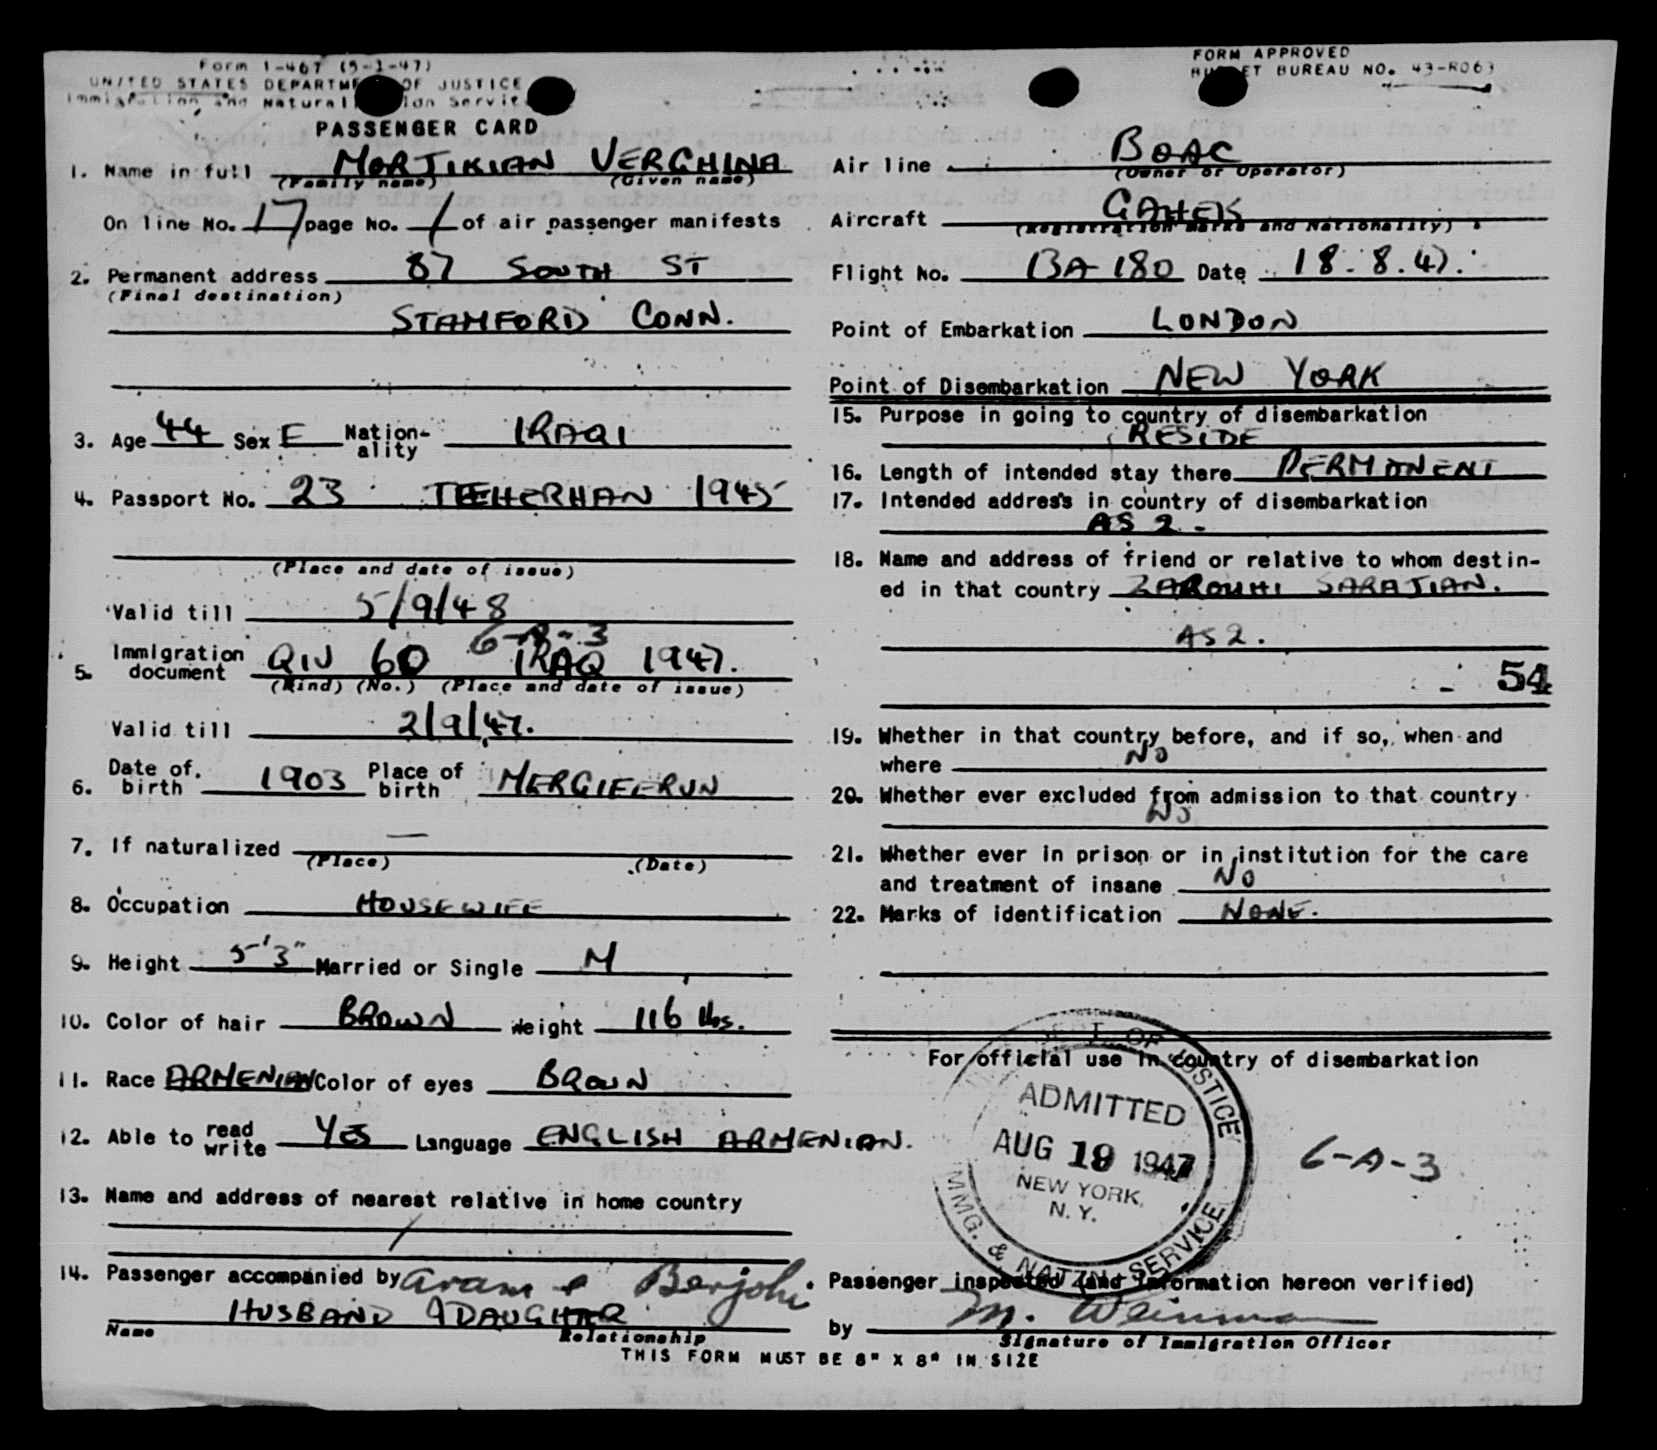 Form I-467 (5-1-47)
UNITED STATES DEPARTMENT OF JUSTICE
Immigration and Naturalization Service
FORM APPROVED
BUDGET BUREAU NO. 43-R063
PASSENGER CARD
1. Name in full MORTIKIAN VERGHINA
(Family name) (Given name)
On line No. 17 page No. 1 of air passenger manifests
2. Permanent address 87 SOUTH ST
(Final destination)
STAMFORD CONN.
3. Age 44 Sex F Nationality IRAQI
4. Passport No. 23 TEHERHAN 1945
(Place and date of issue)
Valid till 5/9/48
6-A-3
5. Immigration document QIV 60 IRAQ 1947.
(Kind) (No.) (Place and date of issue)
Valid till 2/9/47.
6. Date of birth 1903 Place of birth MERGIFERUN
7. If naturalized —
(Place) (Date)
8. Occupation HOUSEWIFE
9. Height 5'3" Married or Single M
10. Color of hair BROWN Weight 116 lbs.
11. Race ARMENIAN Color of eyes BROWN
12. Able to read write YES Language ENGLISH ARMENIAN.
13. Name and address of nearest relative in home country
/
14. Passenger accompanied by Aram & Berjohi
HUSBAND & DAUGHTER
Name Relationship
Air line BOAC
(Owner or Operator)
Aircraft GAHEJS
(Registration marks and Nationality)
Flight No. BA 180 Date 18.8.47.
Point of Embarkation LONDON
Point of Disembarkation NEW YORK
15. Purpose in going to country of disembarkation
RESIDE
16. Length of intended stay there PERMANENT
17. Intended address in country of disembarkation
AS 2.
18. Name and address of friend or relative to whom destin-
ed in that country ZAROUHI SARAJIAN.
AS 2.
54
19. Whether in that country before, and if so, when and
where NO
20. Whether ever excluded from admission to that country
NO
21. Whether ever in prison or in institution for the care
and treatment of insane NO
22. Marks of identification NONE.
For official use in country of disembarkation
DEPT. OF JUSTICE
ADMITTED
AUG 19 1947
NEW YORK,
N. Y.
IMMG. & NATZN. SERVICE
6-A-3
Passenger inspected (and information hereon verified)
by M. Weinman
Signature of Immigration Officer
THIS FORM MUST BE 8" X 8" IN SIZE